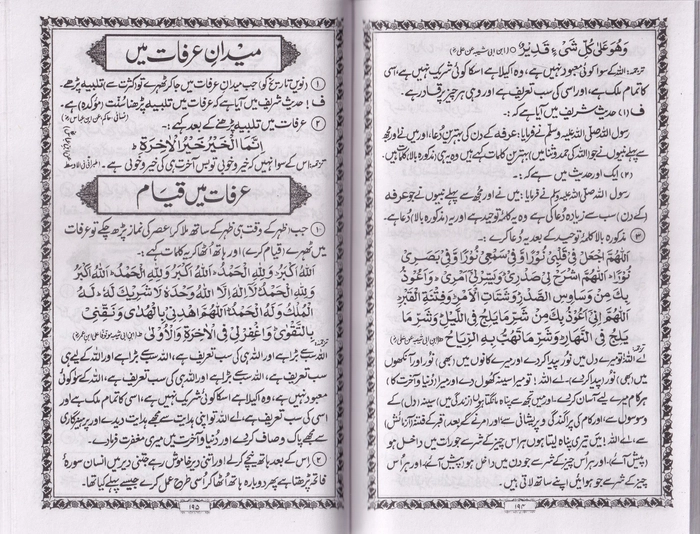 وَهُوَ عَلٰى كُلِّ شَىْءٍ قَدِيْرٌ ○ (ابن ابی شیبہ عن علیؓ)
ترجمہ: اللہ کے سوا کوئی معبود نہیں ہے، وہ اکیلا ہے اسکا کوئی شریک نہیں ہے، اسی
کا تمام ملک ہے اور اسی کی سب تعریف ہے اور وہی ہر چیز پر قادر ہے۔
ف (۱) حدیث شریف میں آیا ہے کہ:
رسول اللہ صلی اللہ علیہ وسلم نے فرمایا: عرفہ کے دن کی بہترین دُعا، اور میں نے اور مجھ
سے پہلے نبیوں نے جو اللہ کی حمد و ثنا میں بہترین کلمات کہے ہیں وہ یہی (مذکورہ بالا) کلمات ہیں۔
(۲) ایک اور حدیث میں ہے کہ:۔
رسول اللہ صلی اللہ علیہ وسلم نے فرمایا: میں نے اور مجھ سے پہلے نبیوں نے جو عرفہ
کے دن سب سے زیادہ دُعا کی ہے وہ یہ کلمۂ توحید ہے اور یہ (مذکورہ بالا) دُعا ہے۔
③ مذکورہ بالا کلمۂ توحید کے بعد یہ دُعا کرے:۔
اَللّٰهُمَّ اجْعَلْ فِىْ قَلْبِىْ نُوْرًا وَّ فِىْ سَمْعِىْ نُوْرًا وَّ فِىْ بَصَرِىْ
نُوْرًا، اَللّٰهُمَّ اشْرَحْ لِىْ صَدْرِىْ وَيَسِّرْ لِىْ اَمْرِىْ، وَاَعُوْذُ
بِكَ مِنْ وَسَاوِسِ الصَّدْرِ وَشَتَاتِ الْاَمْرِ وَفِتْنَةِ الْقَبْرِ
اَللّٰهُمَّ اِنِّىْ اَعُوْذُ بِكَ مِنْ شَرِّ مَا يَلِجُ فِى اللَّيْلِ وَشَرِّ مَا
يَلِجُ فِى النَّهَارِ وَشَرِّ مَا تَهُبُّ بِهِ الرِّيَاحُ (ابن ابی شیبہ عن علیؓ)
اے اللہ! تو میرے دل میں نور پیدا کر دے اور میرے کانوں میں (بھی) نور اور آنکھوں
میں (بھی) نور (پیدا کر دے)، اے اللہ! تو میرا سینہ کھول دے اور میرے (دنیا و آخرت کا)
ہر کام میرے لئے آسان کر دے، اور میں تجھ سے پناہ مانگتا ہوں (زندگی میں) سینہ (دل) کے
وسوسوں سے، اور کام کی پراگندگی و پریشانی سے اور (مرنے کے بعد) قبر کے فتنہ (آزمائش)
سے، اے اللہ! میں تیری پناہ لیتا ہوں ہر اس چیز کے شر سے جو رات میں داخل ہو
(پیش آئے)، اور ہر اس چیز کے شر سے جو دن میں داخل ہو (پیش آئے)، اور ہر اُس
چیز کے شر سے جو ہوائیں اپنے ساتھ لاتی ہیں۔
۱۹۴
میدانِ عرفات میں
① (نویں تاریخ کو) جب میدانِ عرفات میں جا کر ٹھہرے تو (کثرت سے) تلبیہ پڑھے۔
ف: حدیث شریف میں آیا ہے کہ عرفات میں تلبیہ پڑھنا سنت (مؤکدہ) ہے۔
② عرفات میں تلبیہ پڑھنے کے بعد کہے:۔
اِنَّمَا الْخَيْرُ خَيْرُ الْاٰخِرَةِ
ترجمہ: اس کے سوا نہیں کہ خیر و خوبی تو بس آخرت ہی کی خیر و خوبی ہے۔ (طبرانی فی الاوسط
عرفات میں قیام
① جب (ظہر کے وقت ہی ظہر کے ساتھ ملا کر) عصر کی نماز پڑھ چکے تو عرفات
میں ٹھہرے (قیام کرے) اور ہاتھ اُٹھا کر یہ کلمات کہے:۔
اَللّٰهُ اَكْبَرُ وَلِلّٰهِ الْحَمْدُ، اَللّٰهُ اَكْبَرُ وَلِلّٰهِ الْحَمْدُ، اَللّٰهُ اَكْبَرُ
وَلِلّٰهِ الْحَمْدُ، لَاۤ اِلٰهَ اِلَّا اللّٰهُ وَحْدَهٗ لَا شَرِيْكَ لَهٗ، لَهُ
الْمُلْكُ وَلَهُ الْحَمْدُ، اَللّٰهُمَّ اهْدِنِىْ بِالْهُدٰى وَنَقِّنِىْ
بِالتَّقْوٰى وَاغْفِرْ لِىْ فِى الْاٰخِرَةِ وَالْاُوْلٰى
اللہ سب سے بڑا ہے اور اللہ ہی کی سب تعریف ہے، اللہ سب سے بڑا ہے اور اللہ ہی کی سب
تعریف ہے، اللہ سب سے بڑا ہے اور اللہ ہی کی سب تعریف ہے، اللہ کے سوا کوئی
معبود نہیں ہے، وہ اکیلا ہے اسکا کوئی شریک نہیں ہے، اسی کا تمام ملک ہے اور
اسی کی سب تعریف ہے، اے اللہ تو اپنی ہدایت سے مجھے ہدایت دیدے اور پرہیزگاری
سے مجھے پاک و صاف کر دے اور دُنیا و آخرت میں میری مغفرت فرما دے۔
② اس کے بعد ہاتھ نیچے کر لے اور اتنی دیر خاموش رہے جتنی دیر میں انسان سورۂ
فاتحہ پڑھتا ہے پھر دوبارہ ہاتھ اُٹھا کر اسی طرح عمل کرے جیسے پہلے کیا تھا۔
۱۹۵